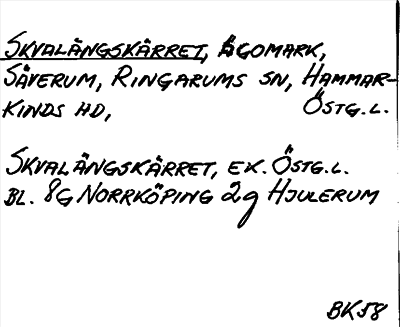 SKVALÄNGSKÄRRET, ÄGOMARK,
SÄVERUM, RINGARUMS SN, HAMMAR-
KINDS HD, ÖSTG.L.
SKVALÄNGSKÄRRET, EK. ÖSTG.L.
BL. 8G NORRKÖPING 2g HJULERUM
BK58